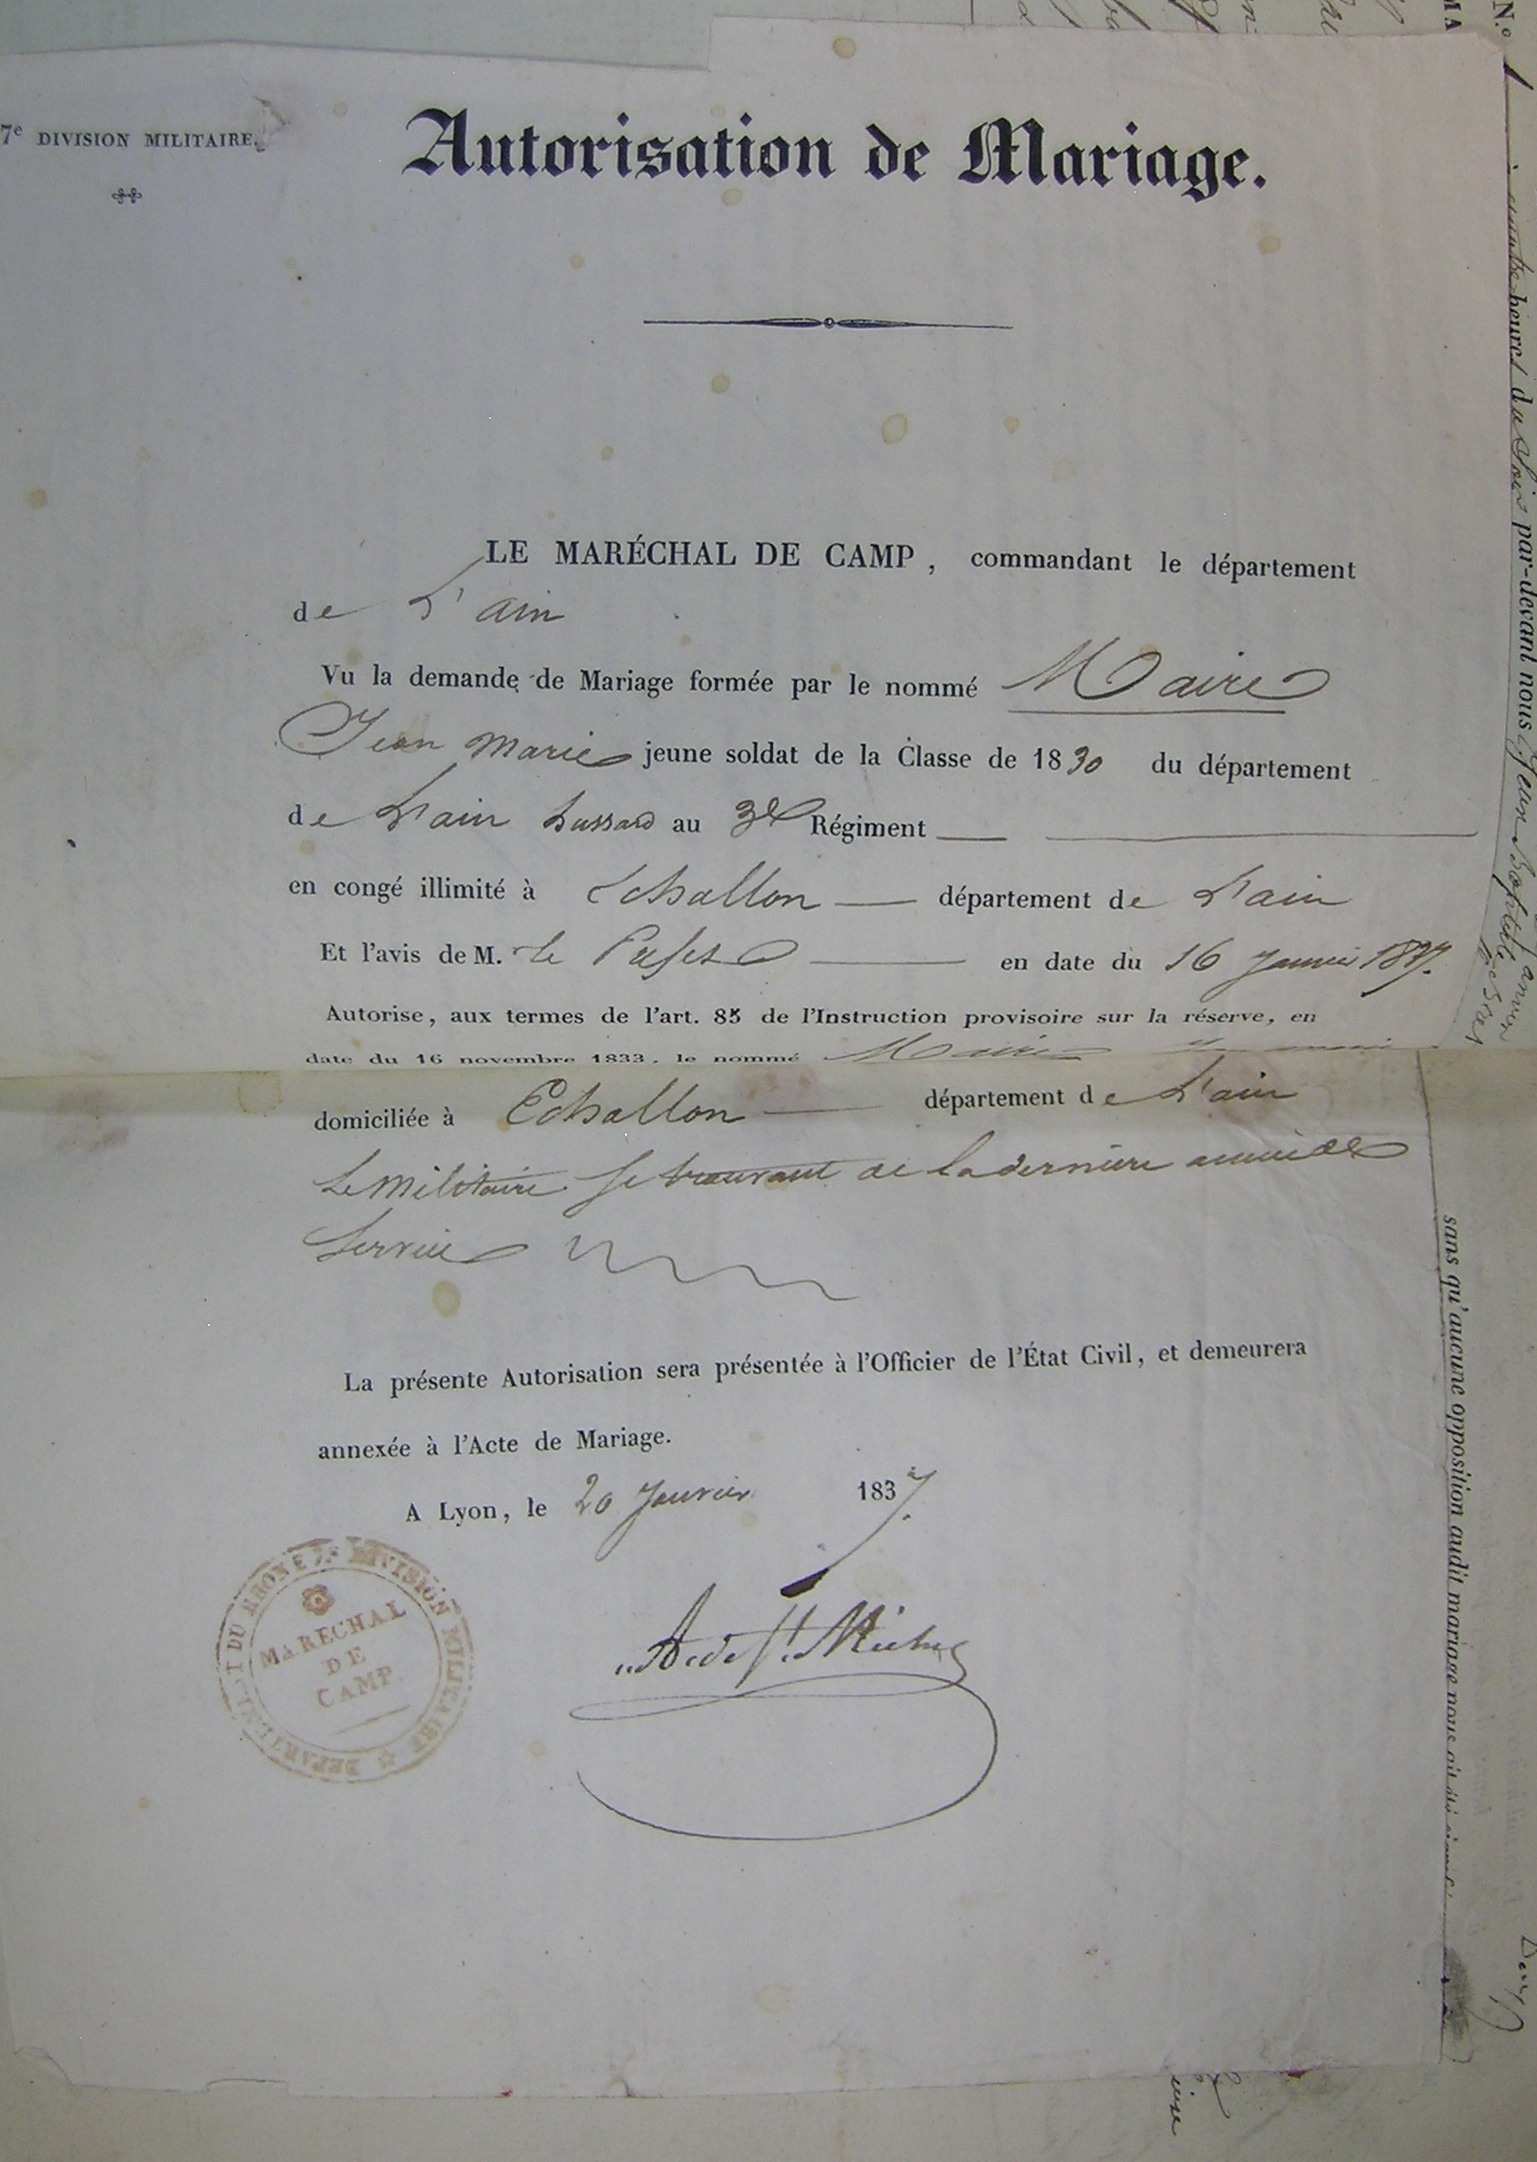 7e DIVISION MILITAIRE.
Autorisation de Mariage.
LE MARÉCHAL DE CAMP, commandant le département
de L'ain
Vu la demande de Mariage formée par le nommé Maire
Jean Marie jeune soldat de la Classe de 1830 du département
de L'ain hussard au 3e Régiment
en congé illimité à Echallon département de L'ain
Et l'avis de M. le Prefet en date du 16 Janvier 1837.
Autorise, aux termes de l'art. 85 de l'Instruction provisoire sur la réserve, en
date du 16 novembre 1833, le nommé Maire
domiciliée à Echallon département de L'ain
Le Militaire se trouvant de la derniere année de
Service
La présente Autorisation sera présentée à l'Officier de l'État Civil, et demeurera
annexée à l'Acte de Mariage.
A Lyon, le 20 Janvier 1837.
A. de St. Michel
7e DIVISION MILITAIRE DEPARTEMENT DU RHONE
MARECHAL
DE
CAMP
N.o 1
MA
heures du Soir par-devant nous Jean Baptiste
sans qu'aucune opposition audit mariage nous ait été